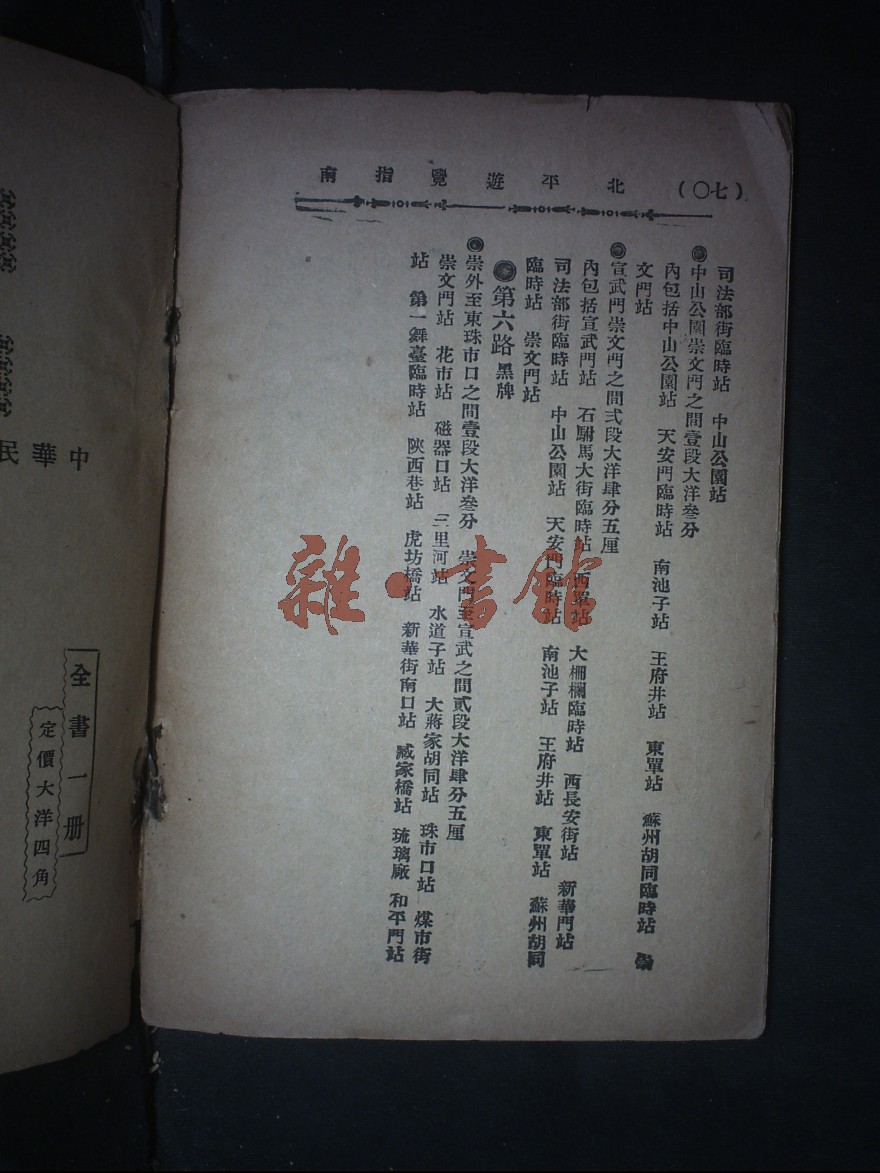 北平遊覽指南 （七〇）
司法部街臨時站　中山公園站
◉中山公園崇文門之間壹段大洋叁分
內包括中山公園站　天安門臨時站　南池子站　王府井站　東單站　蘇州胡同臨時站　崇
文門站
◉宣武門崇文門之間弍段大洋肆分五厘
內包括宣武門站　石駙馬大街臨時站　西單站　大柵欄臨時站　西長安街站　新華門站
司法部街臨時站　中山公園站　天安門臨時站　南池子站　王府井站　東單站　蘇州胡同
臨時站　崇文門站
◉第六路 黑牌
◉崇外至東珠市口之間壹段大洋叁分　崇文門至宣武之間貳段大洋肆分五厘
崇文門站　花市站　磁器口站　三里河站　水道子站　大蔣家胡同站　珠市口站　煤市街
站　第一舞臺臨時站　陝西巷站　虎坊橋站　新華街南口站　臧家橋站　琉璃廠　和平門站
雜·書館
中華民
全書一册
定價大洋四角